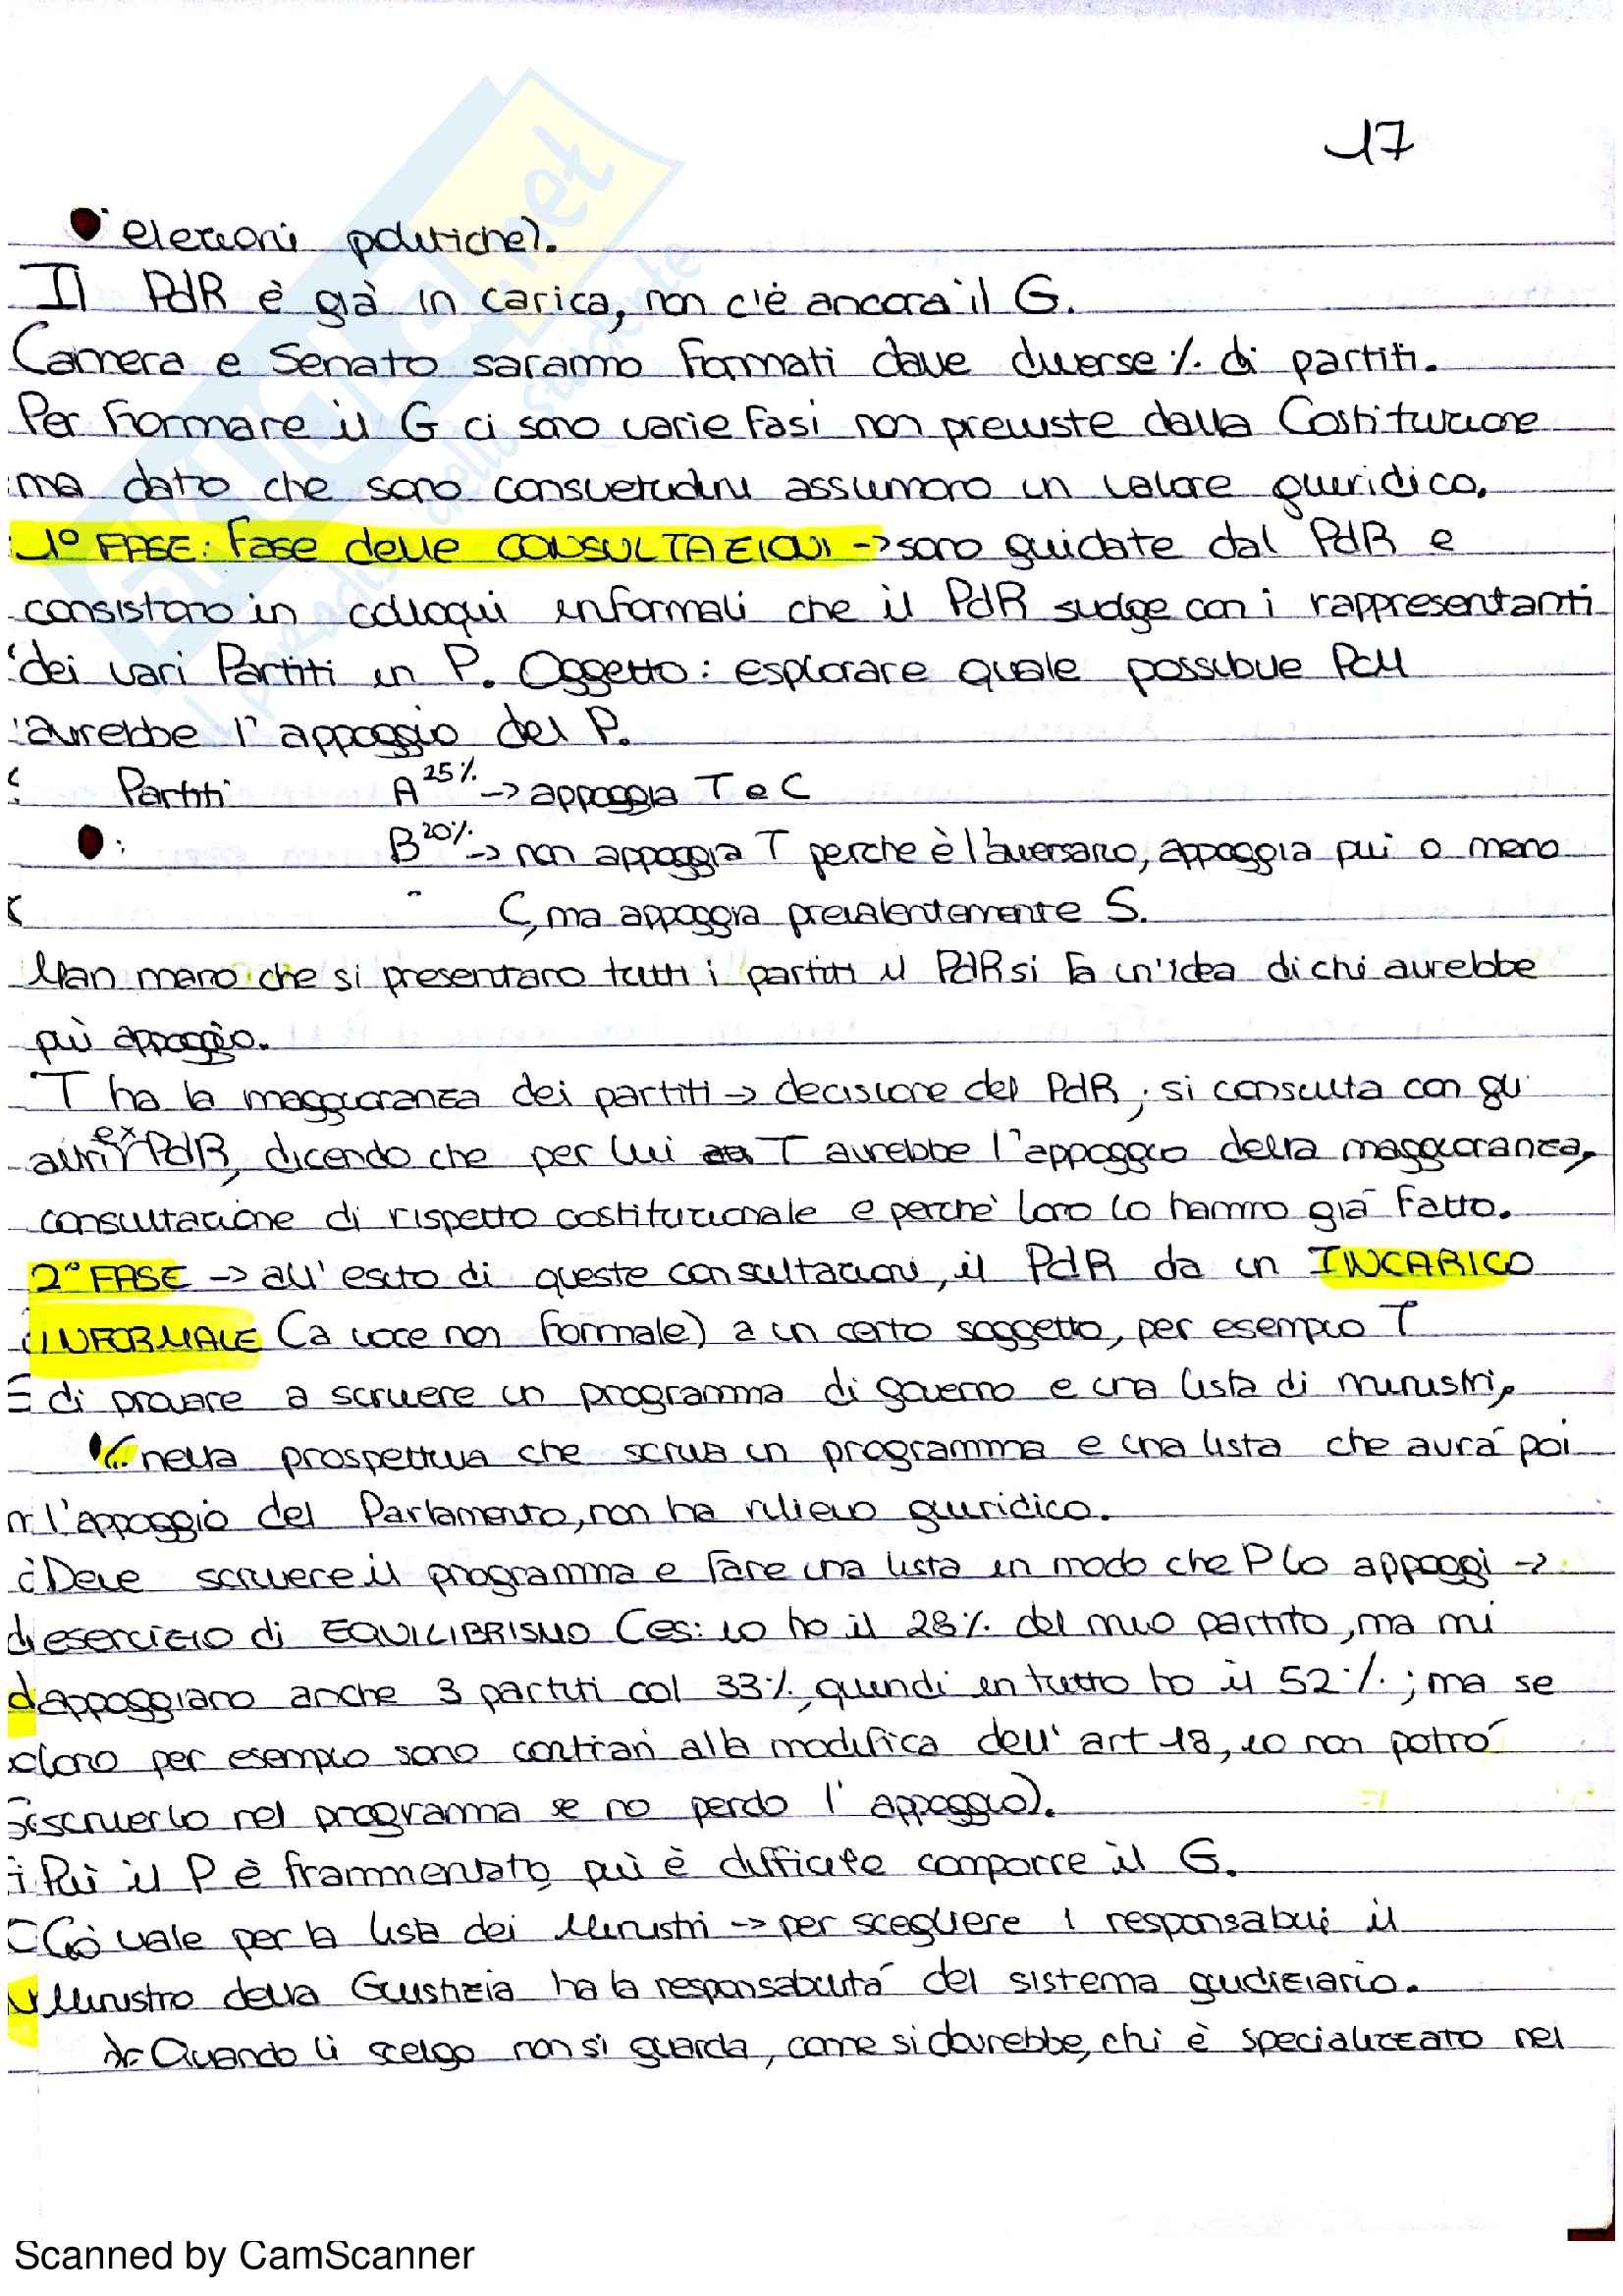 17
elezioni politiche).
Il PdR è già in carica, non c'è ancora il G.
Camera e Senato saranno formati dalle diverse % di partiti.
Per formare il G ci sono varie fasi non previste dalla Costituzione
ma dato che sono consuetudini assumono un valore giuridico.
1° FASE: Fase delle CONSULTAZIONI -> sono guidate dal PdR e
consistono in colloqui informali che il PdR svolge con i rappresentanti
dei vari Partiti in P. Oggetto: esplorare quale possibile PCM
avrebbe l'appoggio del P.
Partiti A 25% -> appoggia T e C
B 20% -> non appoggia T perchè è l'avversario, appoggia più o meno
C, ma appoggia prevalentemente S.
Man mano che si presentano tutti i partiti il PdR si fa un'idea di chi avrebbe
più appoggio.
T ha la maggioranza dei partiti -> decisione del PdR; si consulta con gli
altri ex PdR, dicendo che per lui T avrebbe l'appoggio della maggioranza,
consultazione di rispetto costituzionale e perchè loro lo hanno già fatto.
2° FASE -> all'esito di queste consultazioni, il PdR da un INCARICO
INFORMALE (a voce non formale) a un certo soggetto, per esempio T
di provare a scrivere un programma di governo e una lista di ministri,
nella prospettiva che scriva un programma e una lista che avrà poi
l'appoggio del Parlamento, non ha rilievo giuridico.
Deve scrivere il programma e fare una lista in modo che P lo appoggi ->
esercizio di EQUILIBRISMO (es: io ho il 28% del mio partito, ma mi
appoggiano anche 3 partiti col 33%, quindi in tutto ho il 52%; ma se
loro per esempio sono contrari alla modifica dell'art 18, io non potrò
scriverlo nel programma se no perdo l'appoggio).
Più il P è frammentato, più è difficile comporre il G.
Ciò vale per la lista dei Ministri -> per scegliere i responsabili; il
Ministro della Giustizia ha la responsabilità del sistema giudiziario.
Quando li scelgo non si guarda, come si dovrebbe, chi è specializzato nel
Scanned by CamScanner